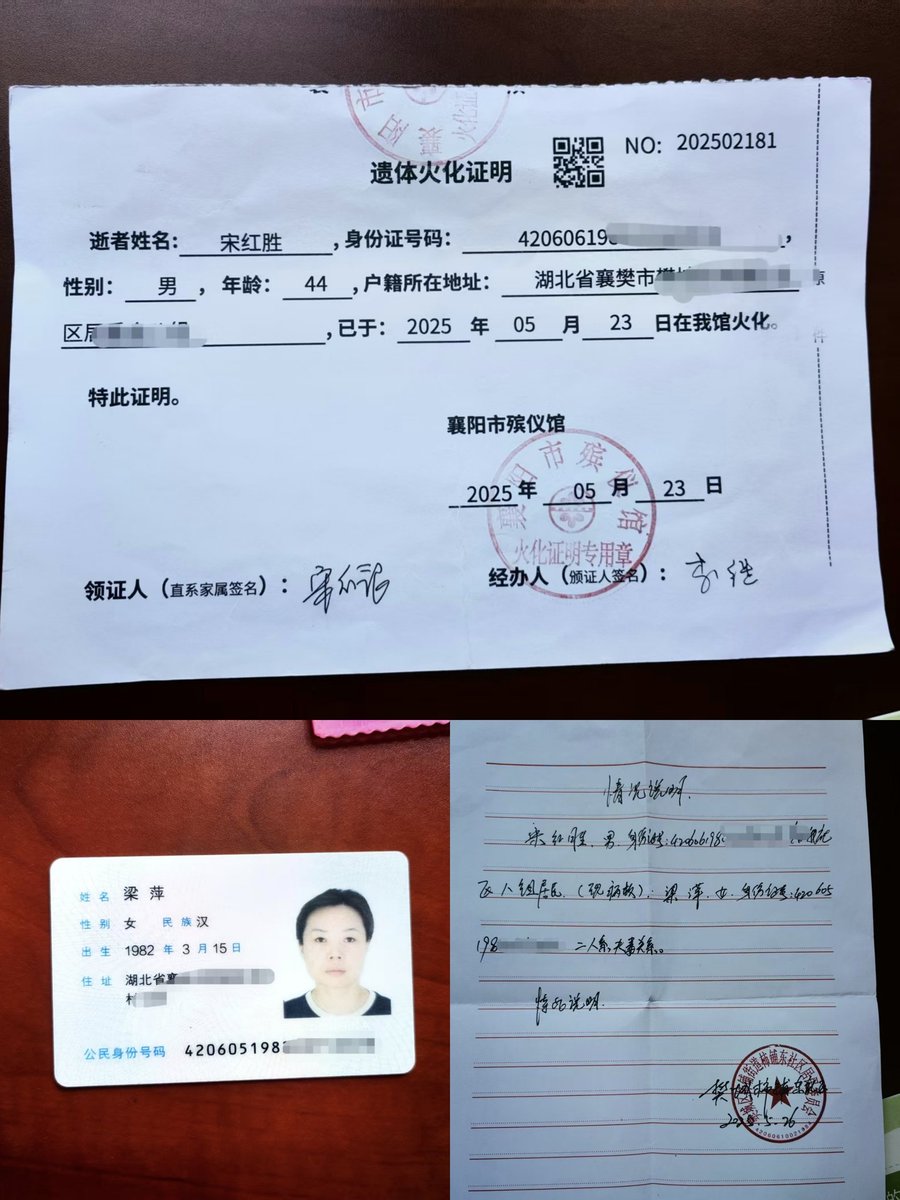 遗体火化证明
NO: 202502181
逝者姓名: 宋红胜, 身份证号码: 42060619
性别: 男, 年龄: 44, 户籍所在地址: 湖北省襄樊市樊
区居, 已于: 2025 年 05 月 23 日在我馆火化。
特此证明。
襄阳市殡仪馆
2025 年 05 月 23 日
襄阳市殡仪馆
火化证明专用章
领证人（直系家属签名）:
经办人（颁证人签名）:
姓名 梁萍
性别 女 民族 汉
出生 1982 年 3 月 15 日
住址 湖北省襄
村
公民身份号码 420605198
情况说明.
宋红胜, 男, 身份证号: 420606198
八组居民（现病故）; 梁萍, 女, 身份证号: 420605
198 二人系夫妻关系。
情况说明.
2025.5.26